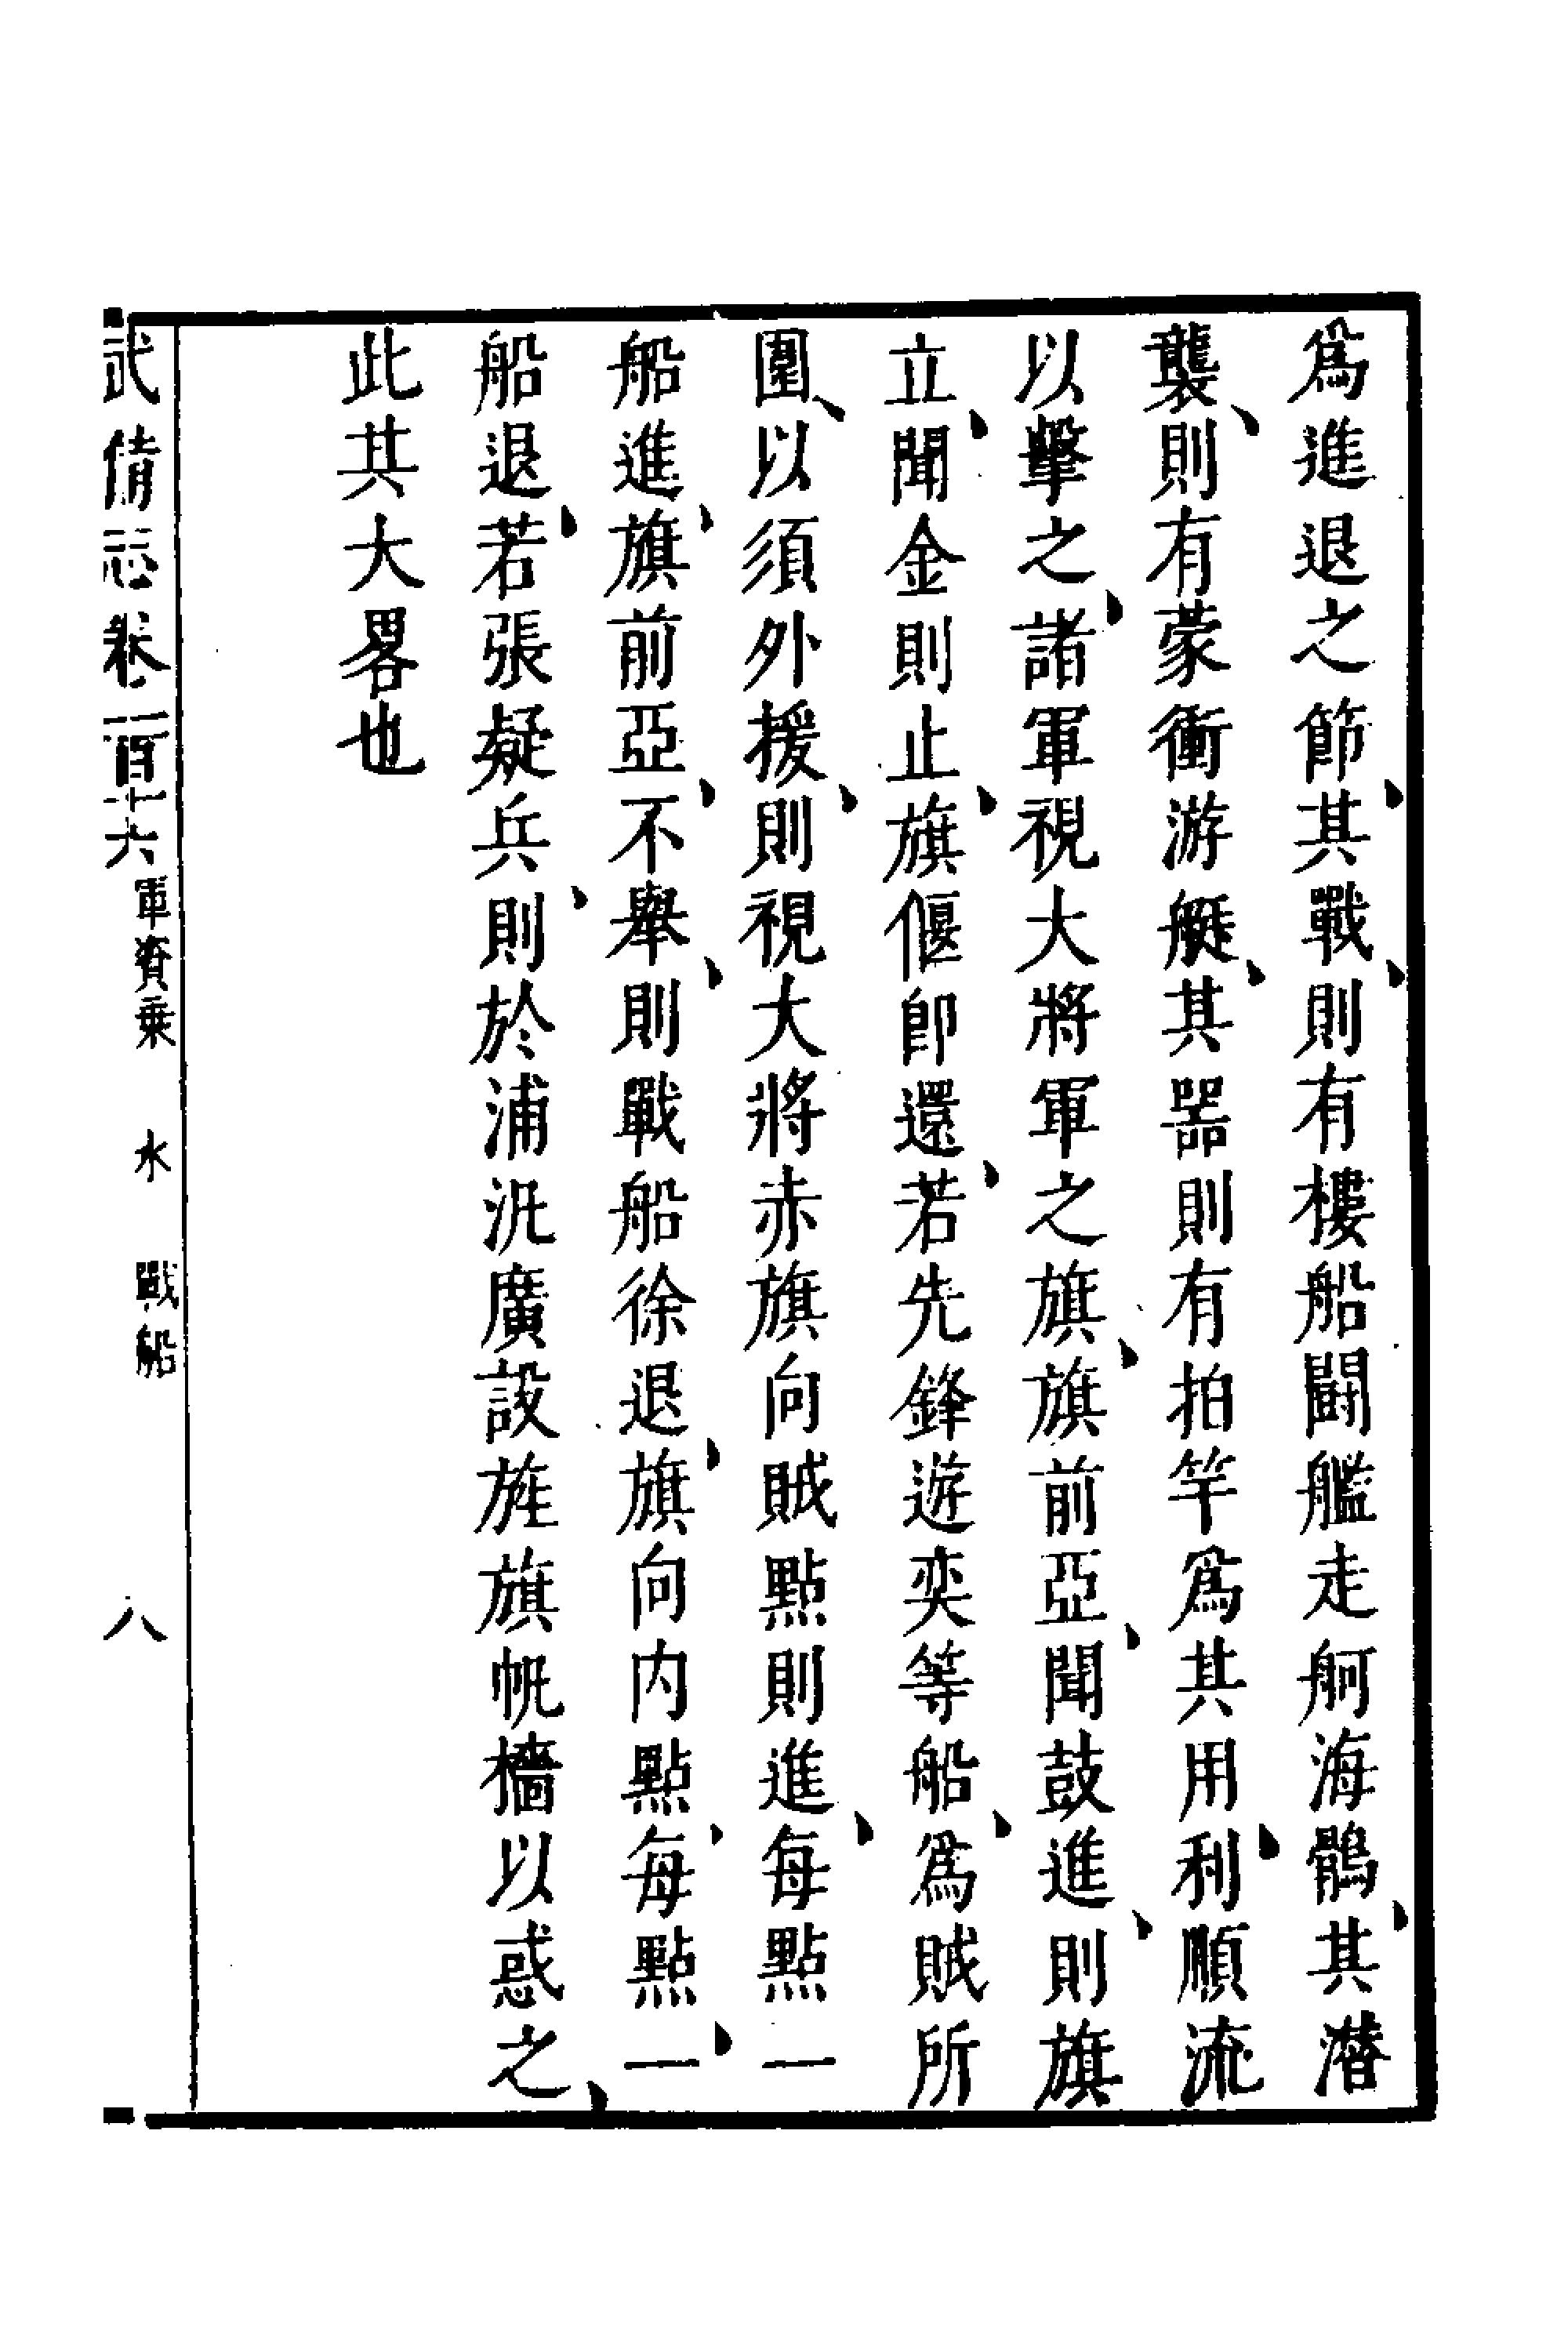 爲進退之節、其戰、則有樓船闘艦走舸海鶻、其潜
襲、則有蒙衝游艇、其器則有拍竿爲其用、利順流
以擊之、諸軍視大將軍之旗、旗前亞、聞鼓進、則旗
立、聞金則止、旗偃卽還、若先鋒遊奕等船、爲賊所
圍、以須外援、則視大將赤旗向賊點則進、每點一
船進、旗前亞、不舉、則戰船徐退、旗向内點、每點一、
船退、若張疑兵、則於浦沠廣設旌旗帆檣以惑之、
此其大畧也
武備志卷二百十六 軍資乗 水 戰船 八